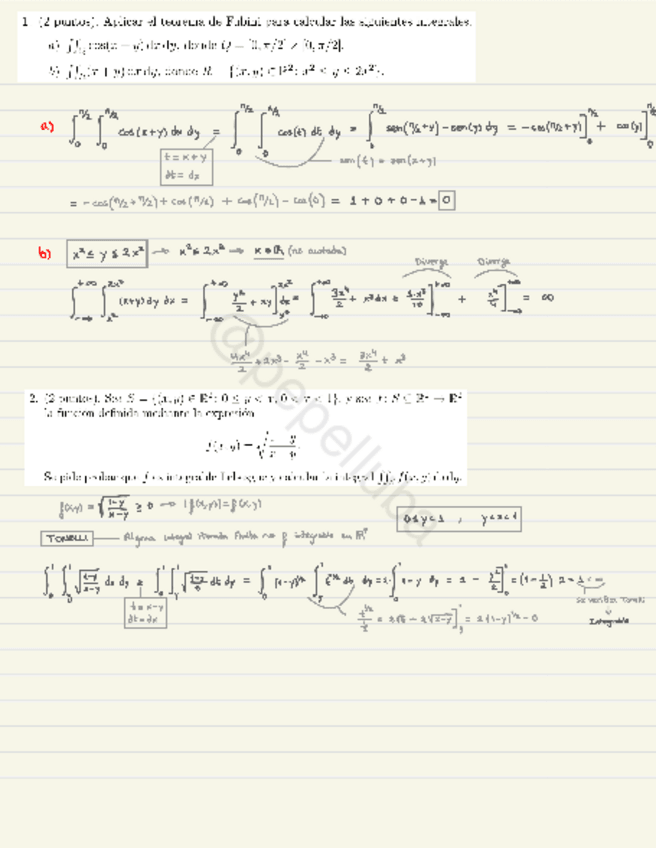 1. (2 puntos). Aplicar el teorema de Fubini para calcular las siguientes integrales.
a) ∫∫ cos(x − y) dx dy, donde Q = [0, π/2] × [0, π/2].
b) ∫∫ (x + y) dx dy, donde R = {(x, y) ∈ R²: x² ≤ y ≤ 2x²}.
a) ∫₀^{π/2} ∫₀^{π/2} cos(x+y) dx dy = ∫₀^{π/2} ∫₀^{π/2} cos(t) dt dy = ∫₀^{π/2} sen(π/2+y) - sen(y) dy = -cos(π/2+y)]₀^{π/2} + cos(y)]₀
t = x+y
dt = dx
sen(t) = sen(x+y)
= -cos(π/2+π/2) + cos(π/2) + cos(π/2) - cos(0) = 1+0+0-1 = 0
b) x² ≤ y ≤ 2x² → x² ≤ 2x² → x ∈ R (no acotada)
Diverge Diverge
∫_{-∞}^{+∞} ∫_{x²}^{2x²} (x+y) dy dx = ∫_{-∞}^{+∞} y²/2 + xy]_{x²}^{2x²} dx = ∫_{-∞}^{+∞} 3x⁴/2 + x³ dx = 3x⁵/10]_{-∞}^{+∞} + x⁴/4]_{-∞}^{+∞} = ∞
4x⁴/2 + 2x³ - x⁴/2 - x³ = 3x⁴/2 + x³
@pepelluba
2. (2 puntos). Sea S = {(x, y) ∈ R²: 0 ≤ y < x, 0 < x < 1}, y sea f: S ⊆ R² → R
la función definida mediante la expresión
f(x, y) =
Se pide probar que f es integrable Lebesgue y calcular la integral ∫∫ f(x, y) dx dy.
f(x,y) = √(1-y/x-y) ≥ 0 → |f(x,y)| = f(x,y)
0≤y<1 , y<x<1
TONELLI Alguna integral iterada finita f integrable en
∫₀¹ ∫_y¹ √(1-y/x-y) dx dy = dt dy = ∫₀¹ (1-y)^{1/2} dt dy = 2·∫₀¹ 1-y dy = 2 - = (1-½) 2 = 1 < ∞
t = x-y
dt = dx
= 2(1-y)^{1/2} - 0
se verifica Tonelli
⇓
Integrable